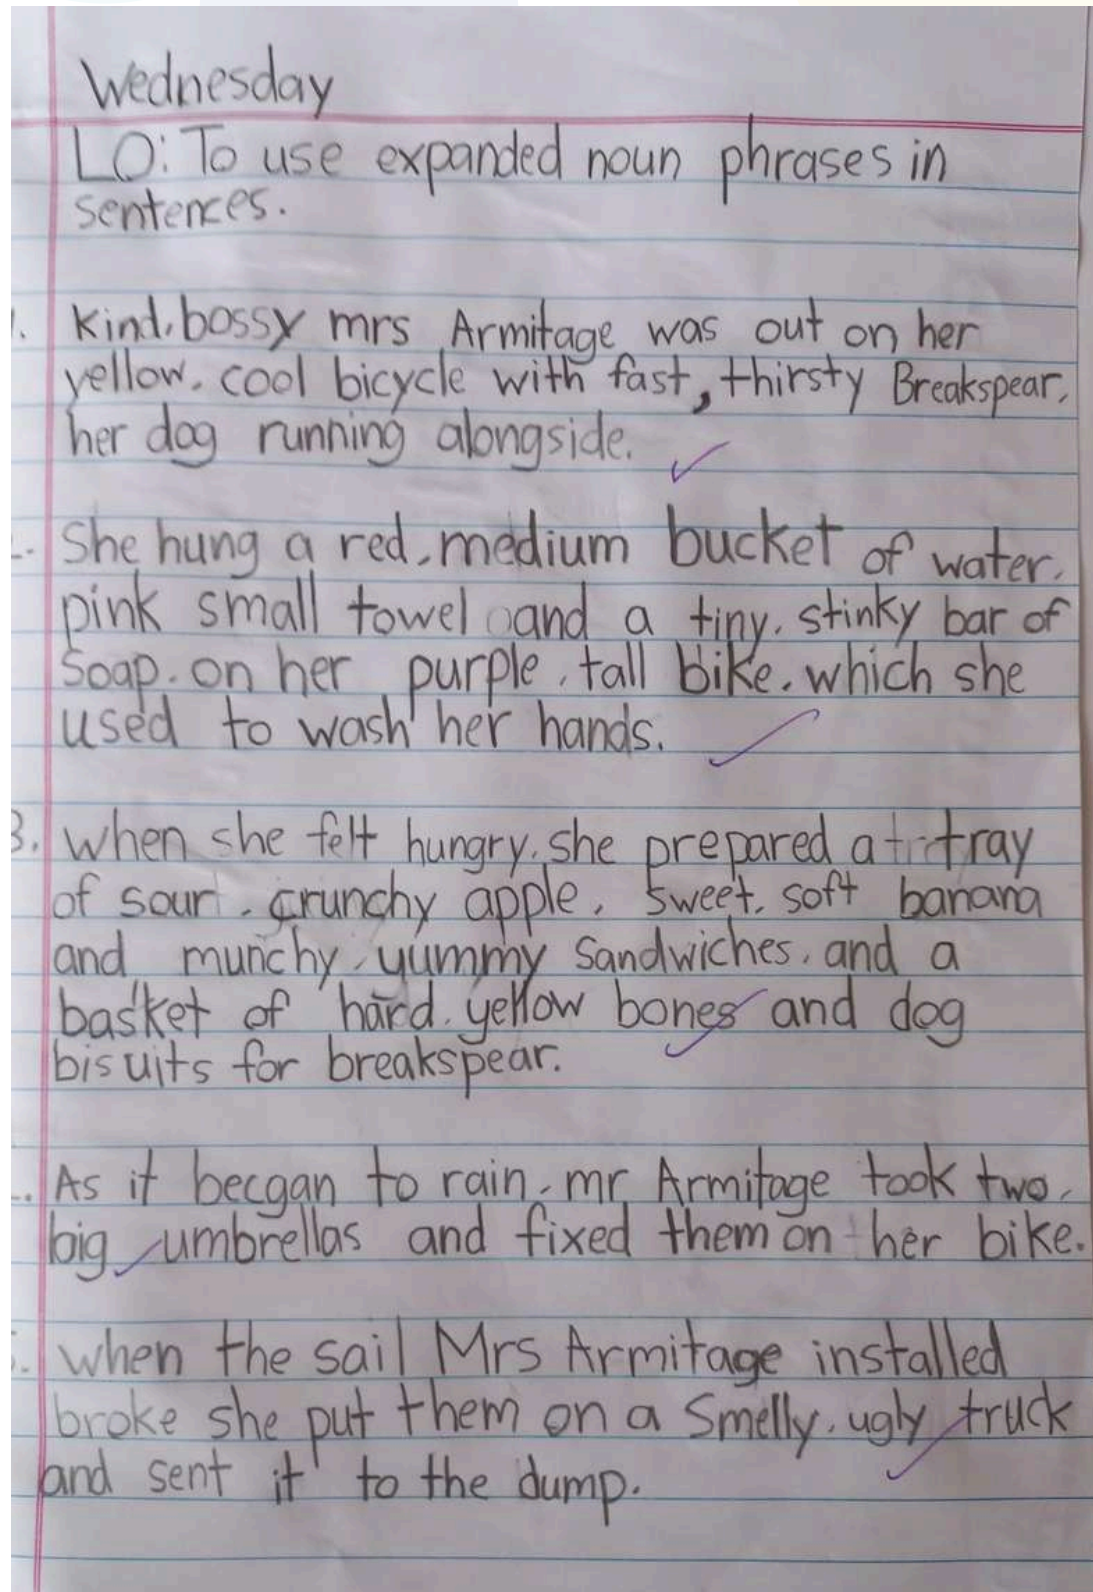 Wednesday
LO: To use expanded noun phrases in
sentences.
1. Kind, bossy mrs Armitage was out on her
yellow, cool bicycle with fast, thirsty Breakspear,
her dog running alongside.
2. She hung a red, medium bucket of water,
pink small towel and a tiny, stinky bar of
soap, on her purple, tall bike, which she
used to wash her hands.
3. When she felt hungry, she prepared a tray
of sour, crunchy apple, sweet, soft banana
and munchy, yummy sandwiches, and a
basket of hard, yellow bones and dog
bisuits for breakspear.
. As it becgan to rain, mr Armitage took two,
big umbrellas and fixed them on her bike.
. when the sail Mrs Armitage installed
broke she put them on a Smelly, ugly truck
and sent it to the dump.